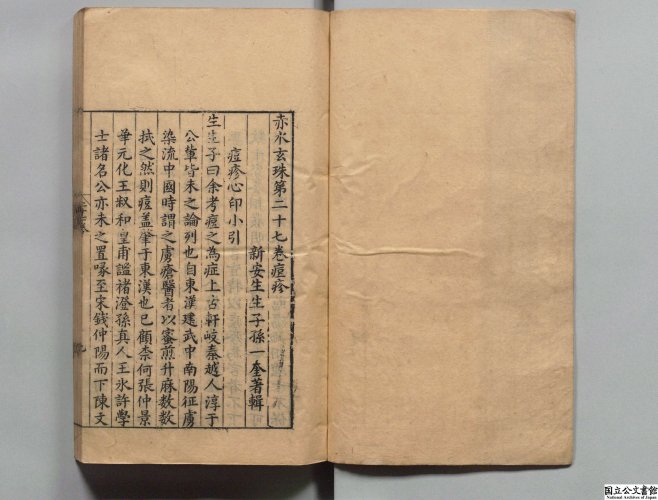 赤水玄珠第二十七卷痘疹
新安生生子孫一奎著輯
痘疹心印小引
生生子曰余考痘之為症上古軒岐秦越人淳于
公輩皆未之論列也自東漢建武中南陽征虜
染流中國時謂之虜瘡醫者以蜜煎升麻數數
拭之然則痘盖肇于東漢也已顧柰何張仲景
華元化王叔和皇甫謐褚澄孫真人王氷許學
士諸名公亦未之置喙至宋錢仲陽而下陳文
国立公文書館
National Archives of Japan